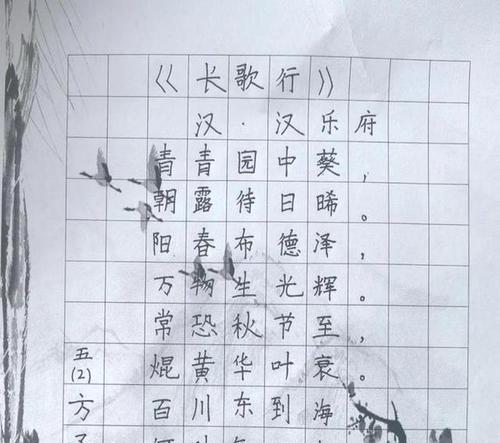 《长歌行》
汉·汉乐府
青青园中葵，
朝露待日晞。
阳春布德泽，
万物生光辉。
常恐秋节至，
焜黄华叶衰。
百川东到海
五(2)
方